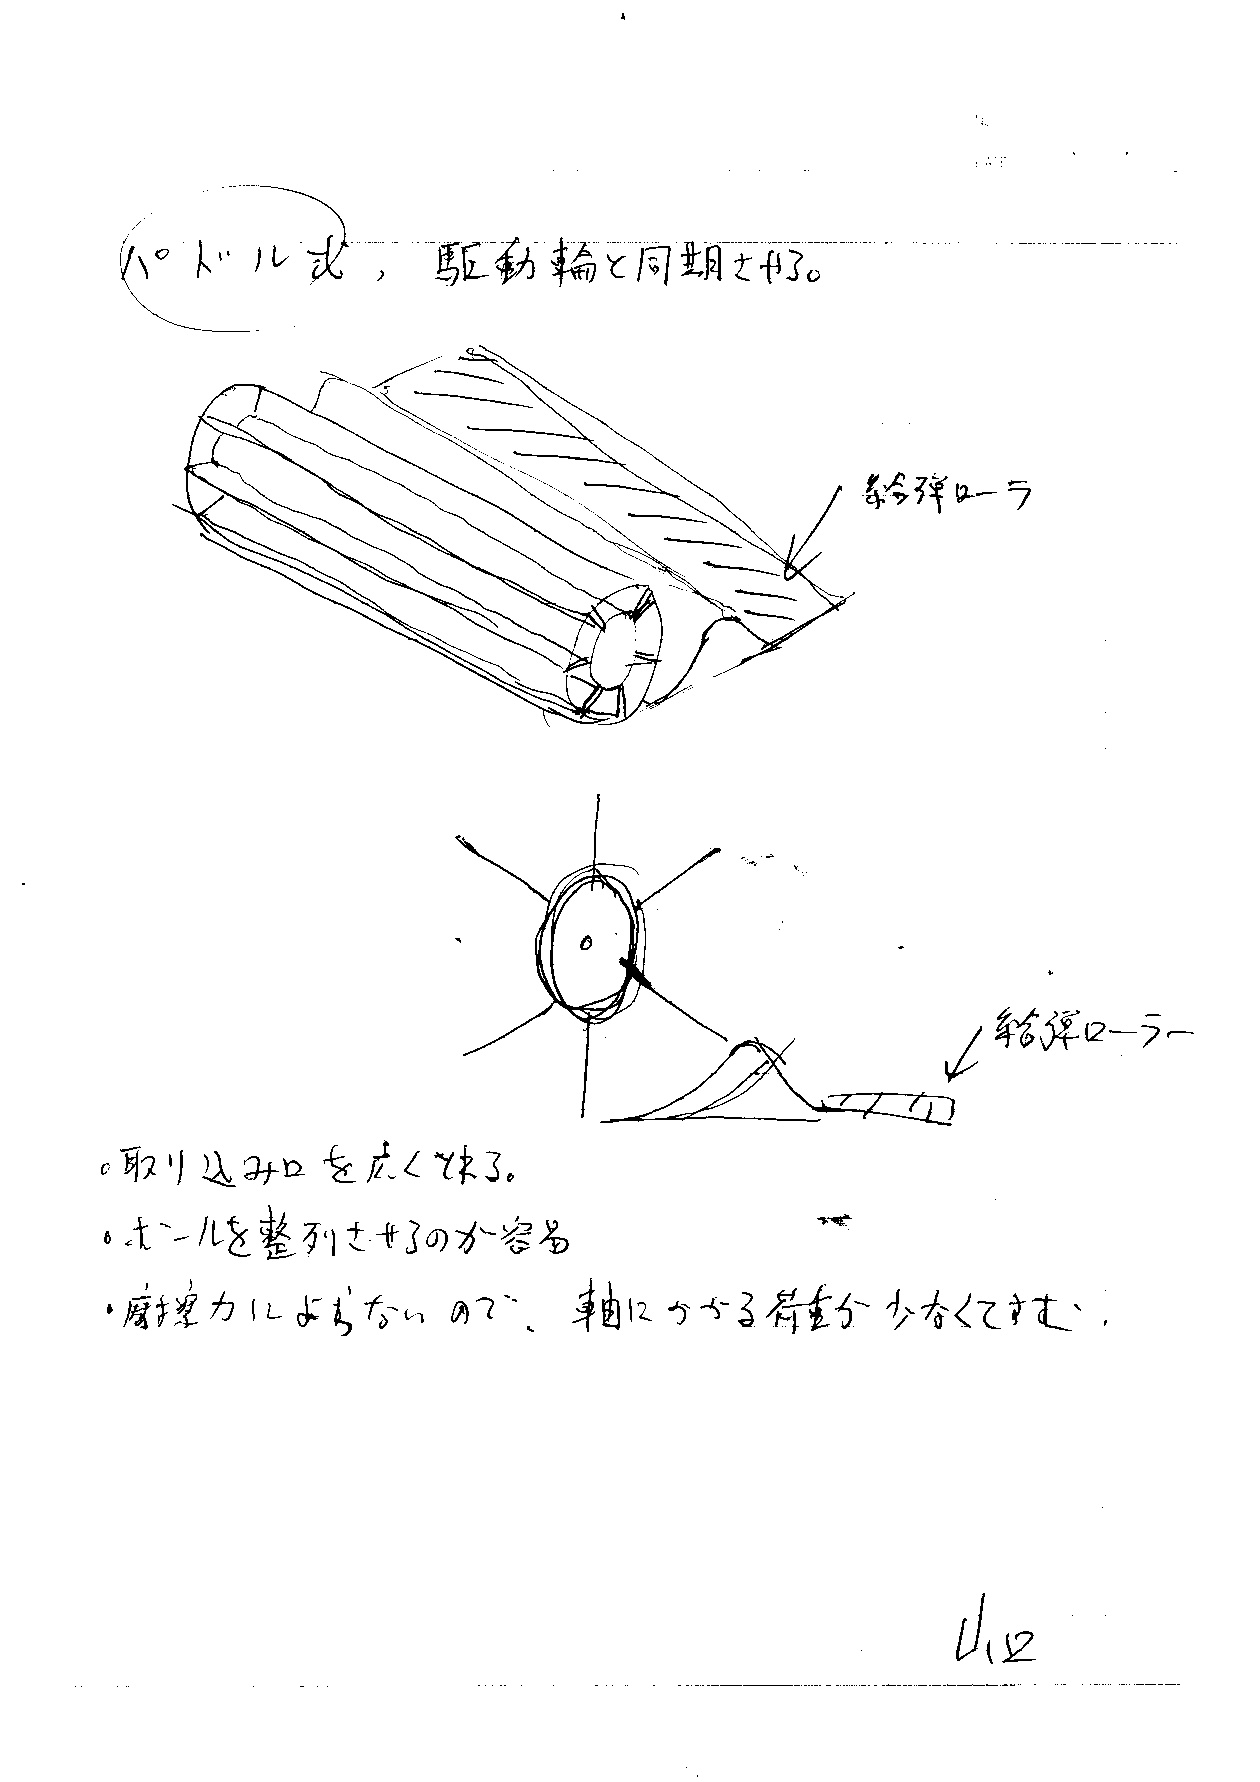 パドル式, 駆動輪と同期させる。
給弾ローラ
給弾ローラー
。取り込み口を広く出来る。
・ボールを整列させるのが容易
・摩擦力によらないので、軸にかかる荷重が少なくてすむ.